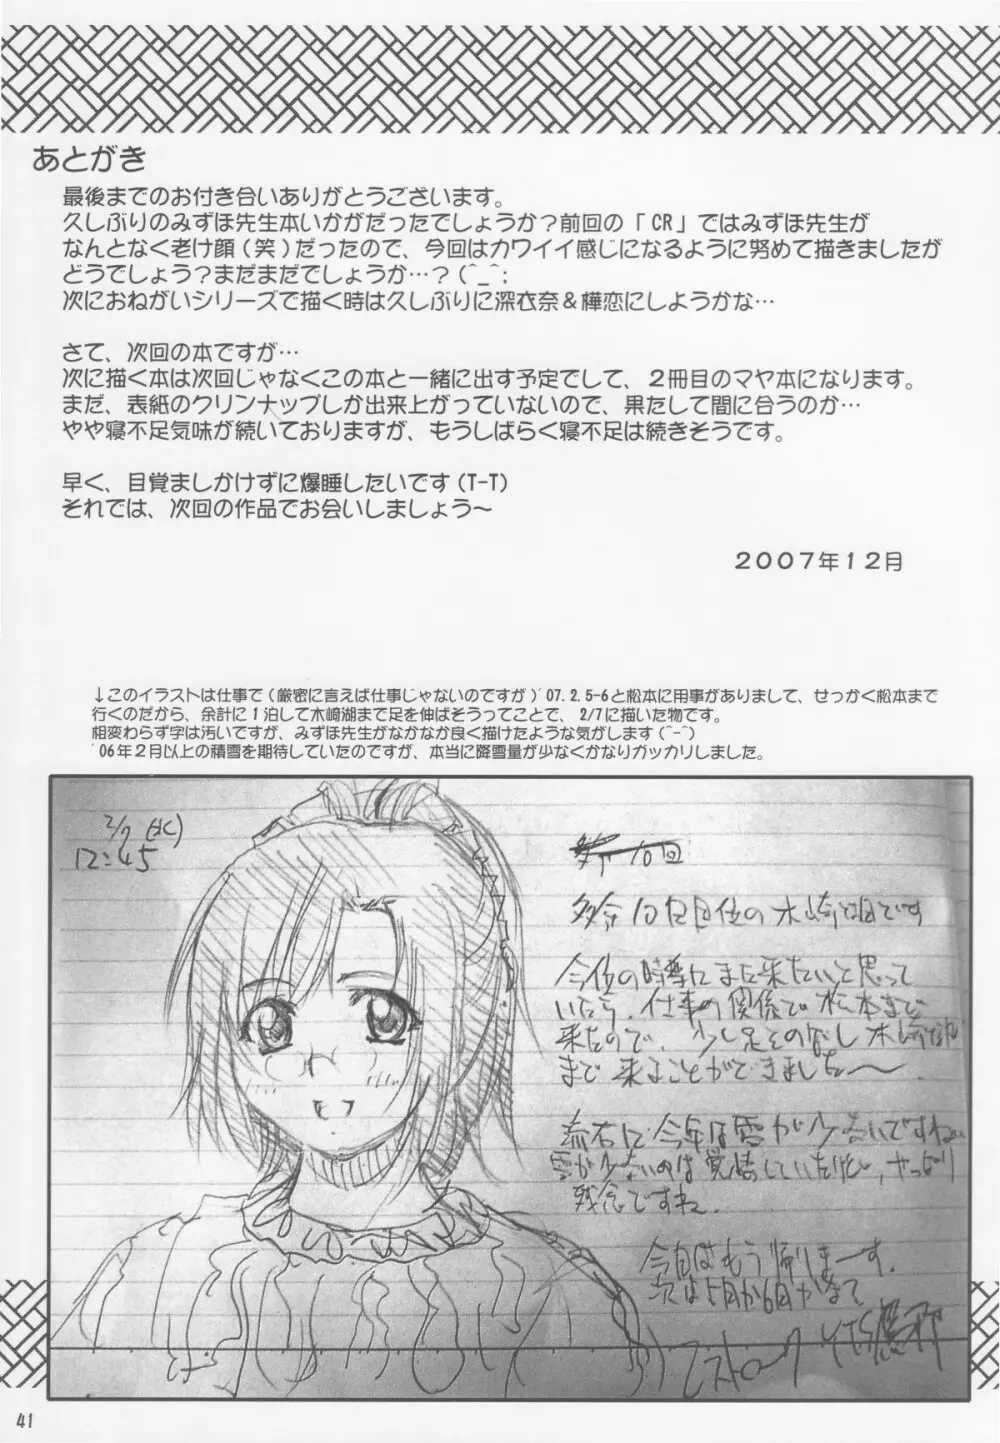 あとがき
最後までのお付き合いありがとうございます。
久しぶりのみずほ先生本いかがだったでしょうか？前回の「CR」ではみずほ先生が
なんとなく老け顔(笑)だったので、今回はカワイイ感じになるように努めて描きましたが
どうでしょう？まだまだでしょうか…？(^_^;
次におねがいシリーズで描く時は久しぶりに深衣奈＆樺恋にしようかな…
さて、次回の本ですが…
次に描く本は次回じゃなくこの本と一緒に出す予定でして、２冊目のマヤ本になります。
まだ、表紙のクリンナップしか出来上がっていないので、果たして間に合うのか…
やや寝不足気味が続いておりますが、もうしばらく寝不足は続きそうです。
早く、目覚ましかけずに爆睡したいです(T-T)
それでは、次回の作品でお会いしましょう～
２００７年１２月
↓このイラストは仕事で(厳密に言えば仕事じゃないのですが)'07.2.5-6と松本に用事がありまして、せっかく松本まで
行くのだから、余計に１泊して木崎湖まで足を伸ばそうってことで、2/7に描いた物です。
相変わらず字は汚いですが、みずほ先生がなかなか良く描けたような気がします(^-^)
'06年２月以上の積雪を期待していたのですが、本当に降雪量が少なくかなりガッカリしました。
2/7 (水)
12:45
10回
多分10回目位の木崎湖です
今位の時季にまた来たいと思って
いたら、仕事の関係で松本まで
来たので、少し足をのばし木崎湖
まで来ることができました〜.
流石に今年は雪が少ないですねぃ
雪が少ないのは覚悟していたけど, やっぱり
残念ですね.
今日はもう帰りまーす.
次は5月か6月かなぁ
41